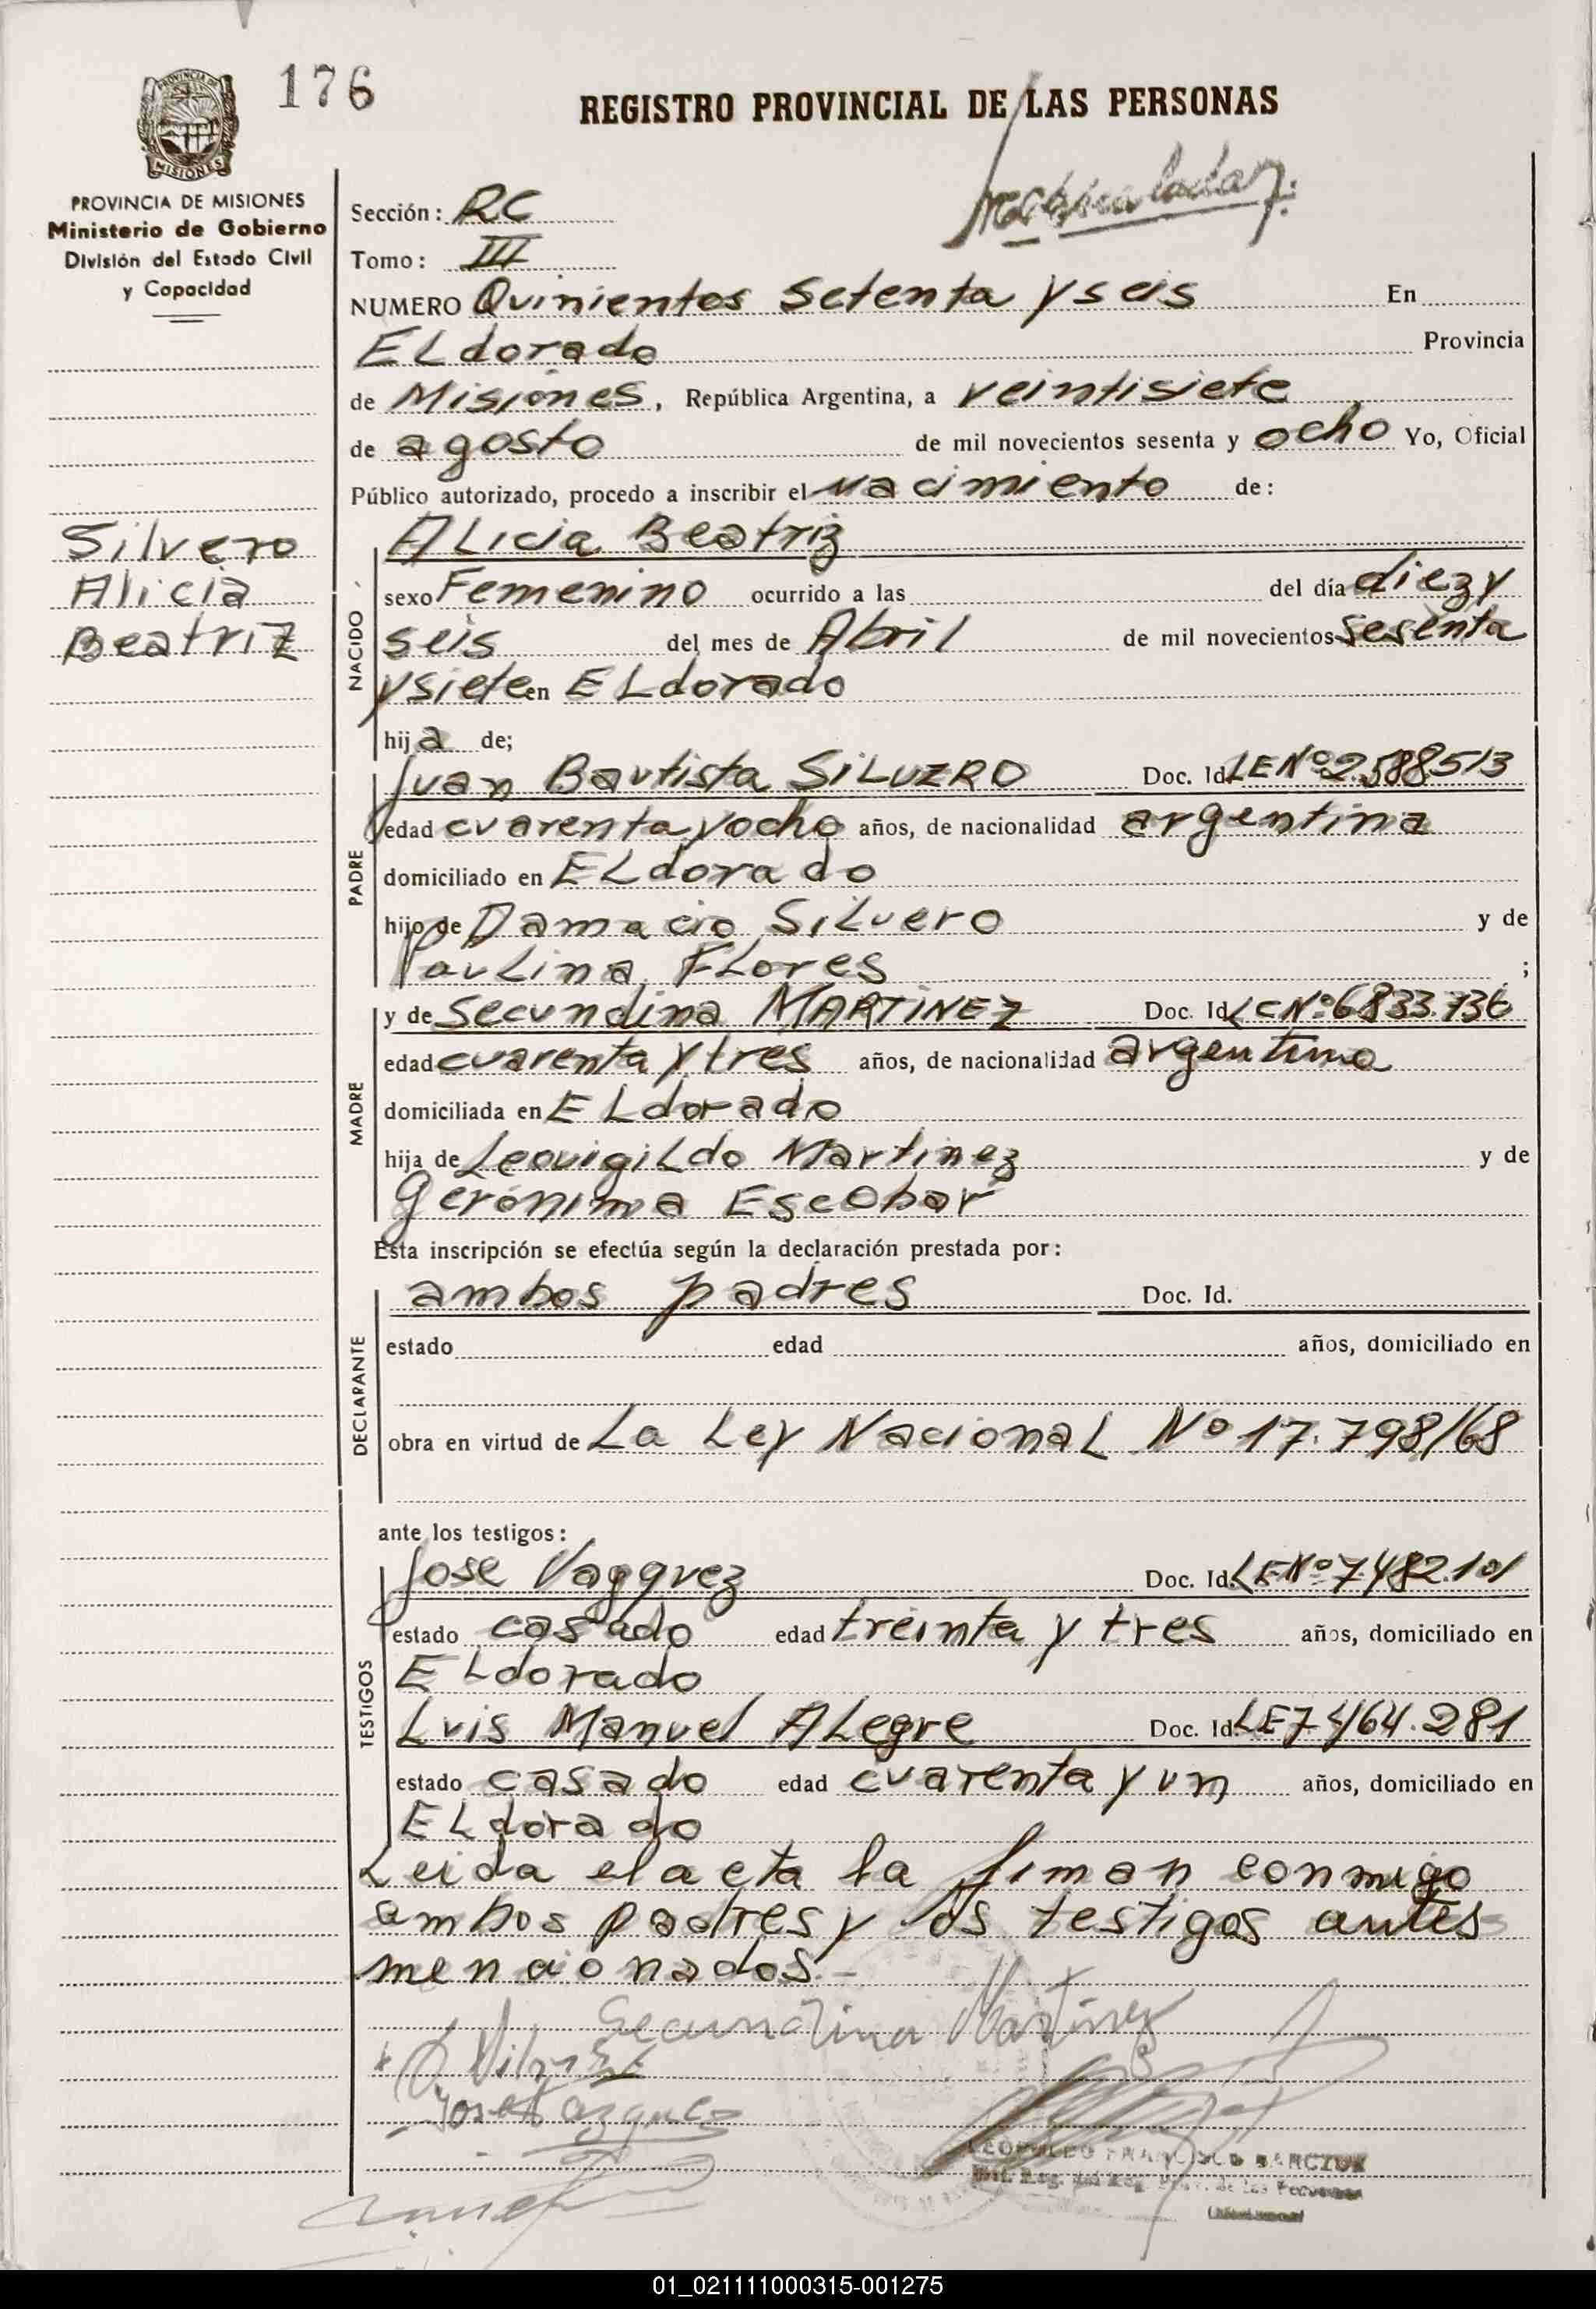 176
REGISTRO PROVINCIAL DE LAS PERSONAS
PROVINCIA DE
MISIONES
PROVINCIA DE MISIONES
Ministerio de Gobierno
División del Estado Civil
y Capacidad
Sección: RC
Tomo: III
NUMERO Quinientos Setenta y seis En
ELdorado Provincia
de Misiones, República Argentina, a veintisiete
de agosto de mil novecientos sesenta y ocho Yo, Oficial
Público autorizado, procedo a inscribir el nacimiento de:
Silvero
Alicia
Beatriz
NACIDO
ALicia Beatriz
sexo Femenino ocurrido a las del día diez y
seis del mes de Abril de mil novecientos sesenta
y siete en ELdorado
hija de;
PADRE
Juan Bautista SiLVERO Doc. Id. LE Nº 2.588513
edad cuarenta y ocho años, de nacionalidad argentina
domiciliado en ELdorado
hijo de Damacio SiLvero y de
PauLina FLores ;
MADRE
y de Secundina MARTiNEZ Doc. Id. LC Nº 6833.736
edad cuarenta y tres años, de nacionalidad argentina
domiciliada en ELdorado
hija de LeovigiLdo Martinez y de
Gerónima Escobar
Esta inscripción se efectúa según la declaración prestada por:
DECLARANTE
ambos padres Doc. Id.
estado edad años, domiciliado en
obra en virtud de La Ley NacionaL Nº 17.798/68
ante los testigos:
TESTIGOS
Jose Vazquez Doc. Id. LE Nº 7482.101
estado casado edad treinta y tres años, domiciliado en
ELdorado
Luis Manuel ALegre Doc. Id. LE 7464.281
estado casado edad cuarenta y un años, domiciliado en
ELdorado
Leida el acta la firman conmigo
ambos padres y los testigos antes
mencionados.-
Secundina Martinez
Jose Vazquez
LEOPOLDO FRANCISCO
01_021111000315-001275